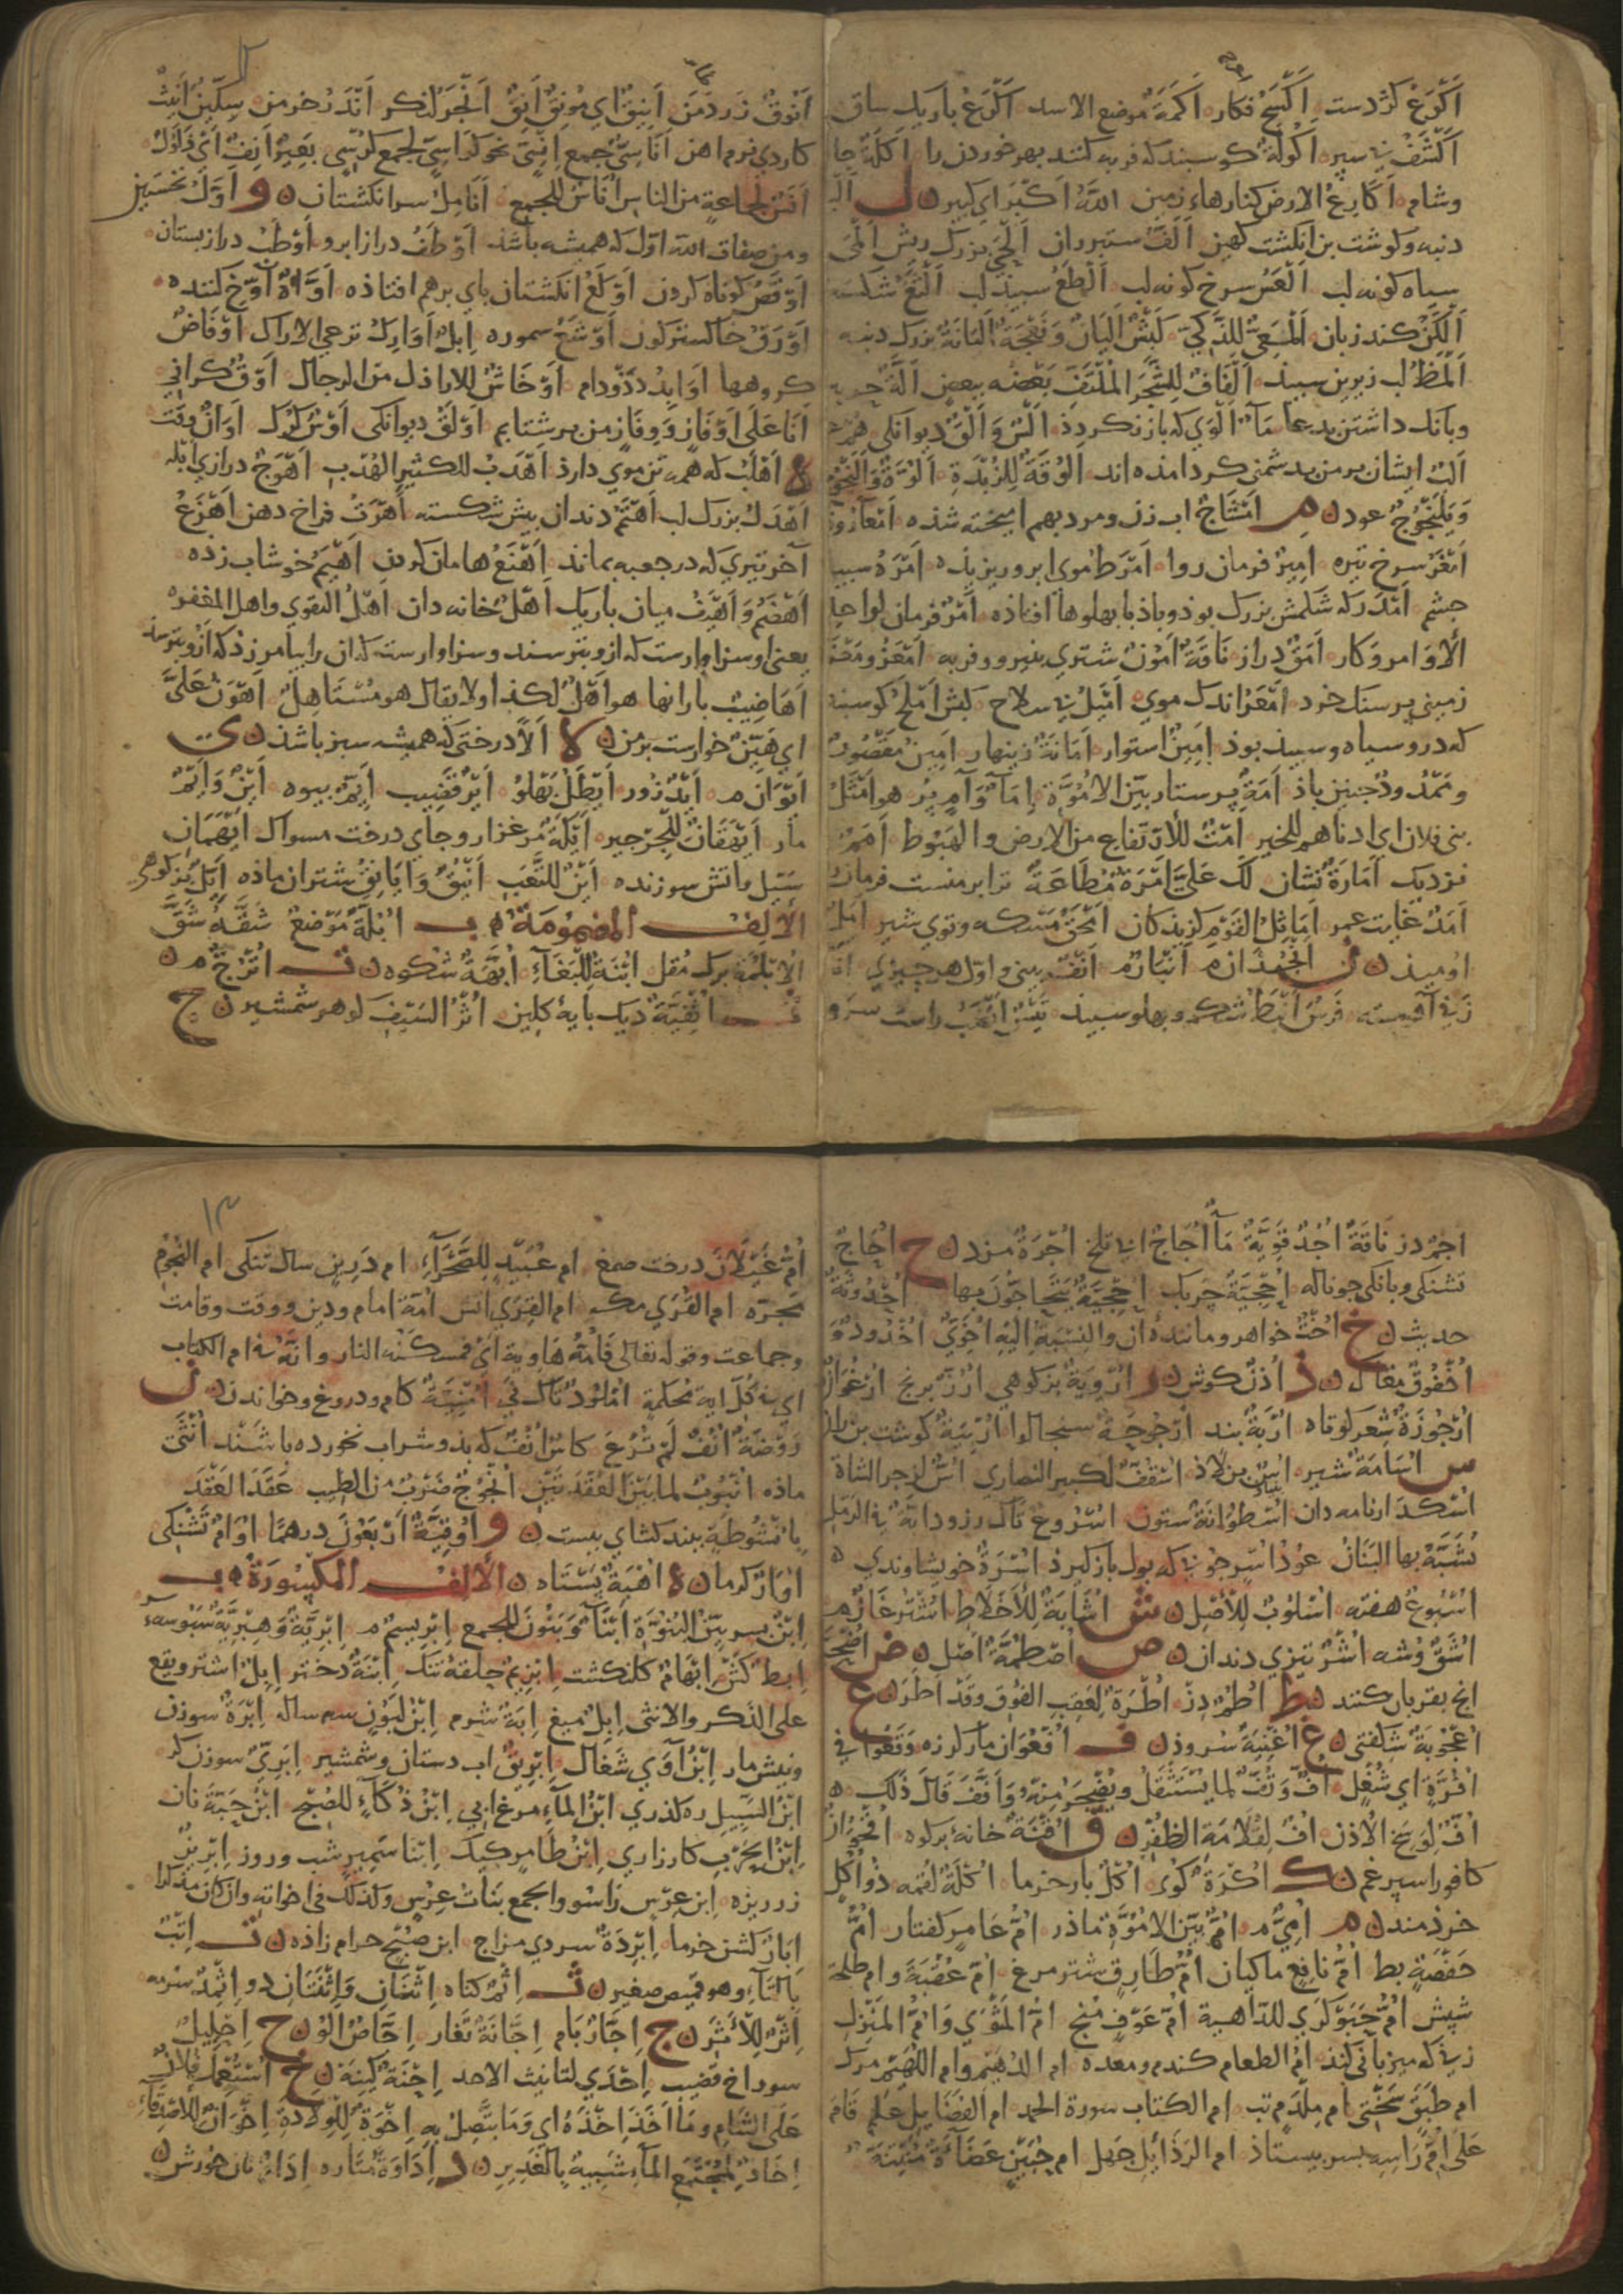 اَكْوَعْ كژدست اَكْسَحْ فكار اَكَمَةٌ موضع الاسد اَكْرَعْ باريك ساق
اَكْشَفْ بی سپر اَكُولَةٌ كوسبند كه فربه كنند بهر خوردن را اَكَلَةٌ جا
وشام اَكَارِعُ الارض كنارهاء زمين اللهُ اَكْبَر اي كبير ل
دنبه وكوشت بن انكشت كهين اَلَفّ ستبرران اَلْحَي بزرك ريش اَلْمَى
سياه كونه لب اَلْعَس سرخ كونه لب اَلْطَعُ سبيذ لب اَلْثَغُ شكسته
اَلْكَنْ كند زبان اَلْمَعِيّ للذكيّ كَبْشٌ اَلْيَانٌ وَنَعْجَةٌ اَلْيَانَةٌ بزرك دنبه
اَلْمَظُ لب زيرين سبيذ اَلْفَافٌ لِلشَّجَرِ الْمُلْتَفِّ بَعْضُه ببعضٍ اَلَّةٌ حربه
وبانك داشتن بدعا اَلْوَي كه باز نكردذ اَلْسُ وَ اَلْقُ ديوانكى هُمْ
اَلْبٌ ايشان بر من بدشمنى كرد امذه اند اَلُوقَةٌ لِلزُّبْدَةِ
وَيَلَنْجُوجٌ عود م اَمْشَاجٌ اب زن ومرد بهم اميخته شذه
اَمْغَرْ سرخ تيره اَمِيرْ فرمان روا اَمْرَطْ موى ابرو ريزيذه اَمْرَهُ سبيد
جشم اَمْدَرْ كه شكمش بزرك بوذ وباذ با بهلوها افتاذه اَمْرٌ فرمان لواحد
الاَوامر وكار اَمَقّ دراز نَاقَةٌ اَمُونٌ شترى بنيرو وفربه اَمْعَزُ ومَعْزَ
زمينى پر سنك خرد اَمْعَرْ اندك موي اَمْيَلُ بی سلاح كبش اَمْلَح كوسبند
كه درو سياه وسبيد بوذ اَمِينْ استوار اَمَانَةٌ زينهار اَمِينْ مَقْصُورٌ
ومَمْدُودٌ جنين باذ اَمَةٌ پرستار بَيّنَ الاُمُوَّةِ اِمَآءٌ وَآمٍ هو اَمْثَلُ
بنى فلان اى ادناهم للخير اَمْتٌ للاِرْتفاع من الارض والهُبُوط اَمَمْ
نزديك اَمَارَةٌ نشان لَكَ عَلَيَّ اَمْرَةٌ مُطَاعَةٌ ترا بر منست فرمان
اَمَدٌ غايت عمر اَمَاثِلُ القَوْمِ كزيذكان
اوميذ ن اَنْجُذان م اَنْبَارٌ م اَنْفٌ بينى واوّل هر جيزى
زنی آهسته فَرَسٌ اَنْبَطْ شكم وبهلو سبيذ تَيْسٌ اَنْصَبُ راست سرو
١٢
اَنْوَقْ اَنِيقٌ اي مُونِقٌ اَنَقٌ اَنْجَرْ لنكر اَنْدَرْ خرمن سِكّينٌ اَنِيثٌ
كاردى نرم اهن اَنَاسِيّ جمع اِنْسِيّ نحو كراسيّ لجمع كرسيّ بعيرٌ اَنِفٌ
اَنَسٌ لجماعةٍ من الناس اُنَاسٌ للجمع اَنَامِلُ سر انكشتان ن و اَوّلْ نخستين
ومن صفات الله اوّل كه هميشه باشذ اَوْطَفُ درازابرو اَوْطَبُ درازبستان
اَوْقَصُ كوتاه كردن اَوْكَعْ انكشتان باي برهم افتاذه
اَوْرَقُ خاكسترگون اَوْشَعْ سموره اِبِلٌ اَوَارِكُ ترعى الاراك اَوْفَاضٌ
كروهها اَوَابِدُ دذ ودام اَوْخَاشٌ للاراذل من الرجال اَوْقٌ كرانى
اَنَا عَلَى اَوْفَازٍ وَوِفَازٍ من بر شتابم اَوْلَقْ ديوانكى اَوْسٌ كرك اَوَانٌ وقت
ه اَهْلَبْ كه همه تن موي دارذ اَهْدَبُ للكثير الهُدْبِ اَهْوَجُ درازى ابله
اَهْدَلُ بزرك لب اَهْتَمْ دندان پيش شكسته اَهْرَتُ فراخ دهن اَهْزَعُ
آخر تيري كه در جعبه بماند اَهْنَعُ هامان كردن اَهْيَمْ خوشاب زده
اَهْضَمُ وَ اَهْيَفُ ميان باريك اَهْلٌ خانه دان اهلُ التقوي واهل المغفرة
يعنى او سزاوارست كه ازو بترسند وسزاوارست كه ان رابيامرزذ كه ازو بترسذ
اَهَاضِيبُ بارانها هو اَهْلٌ لكذا ولا يقال هو مُسْتَاهِلٌ اَهْوَنُ عَلَيَّ
اي هَيِّنٌ خوارست بر من ن لا اَلآءٌ درختى كه هميشه سبز باشذ ن ي
اَيْوَان م اَيْدٌ زور اَيْطَلٌ بَهْلُو اَيْرٌ قضيب اَيِّمْ بيوه اَيْنٌ وَ اَيْمٌ
مار اَيْهُقَانٌ للجرجير اَيْكَةٌ مرغزار وجاي درخت مسواك اَيْهَمَانِ
سَيْل واتش سوزنده اَيْنٌ للتَّعَبِ اَيْنُقٌ وَاَيَانِقُ شتران ماذه اَيّلْ بزكوهى
الألف المضمومة ب اُبُلَّةُ مَوْضِعٌ شُقَّةُ شَقَّ
الاُبْلُمَة برك مُقل اُبْنَةٌ لِلْبِغَآءِ اُبَّهَةٌ شكوه ن ت اُتْرُجٌّ م ن
ث اُثْفِيَّةٌ ديك بايهٔ كلين اُثْرُ السَّيْفِ كوهر شمشير ن ج
اُجُمْ دز نَاقَةٌ اُجُدٌ قَوِيَّةٌ مَآءٌ اُجَاجٌ اب تلخ اُجْرَةٌ مزد ن ح اُحَاحٌ
تشنكى وبانكى جو ناله اُحْجِيَّةٌ جربك اُحْجِيَّةٌ يَتَحَاجَوْنَ بها اُحْدُوثَةٌ
حديث ن خ اُخْتٌ خواهر ومانندهٔ ان والنِسْبَةُ اِلَيْهِ اُخَوِيٌّ اُخْدُودٌ وَ
اُخْقُوقٌ مغاك ن ذ اُذُنٌ كوش ن ر اُرْوِيَةٌ بزكوهى اُرُزٌّ برنج اُرْغُوَانٌ
اُرْجُوزَةٌ شعر كوتاه اُرْبَةٌ بند اُرْجُوحَةٌ اُرْبِيَّةٌ كوشت بن ران
س اُسَامَةُ شير اُسٌّ بن لاذ اُسْقُفٌّ لكبير النصارى اُسْ لزجر الشاة
اُسْكُدَارْ نامه دان اُسْطُوَانَةٌ ستون اُسْرُوعٌ تاك رز ودابّةٌ في الرمل
تُشَبَّهُ بها البَنَانُ عُوْدُ اُسْرٍ جوبی كه بول بازكيرذ اُسْرَةٌ خويشاوندى ن
اُسْبُوعٌ هفته اُسْلُوبٌ لِلاَصْلِ ن ش اُشَابَةٌ لِلاَخْلَاطِ اُشْتُرْغَازْ م
اُشَّقْ وُشه اُشُرٌ تيزى دندان ن ص اُصْطُمَّةٌ اصل ن ض اُضْحِيَّةٌ
انج بقربان كنند ن ط اُطُمْ دِز اُطْرَةٌ لِعَقِبِ الفُوق وَقَدْ اَطَرَ ن ع
اُعْجُوبَةٌ شكفتى ن غ اُغْنِيَةٌ سروذ ن ف اُفْعُوَان مار كرزه وَقَعُوا في
اُفُرَّةٍ اي شُغْلٍ اُفٌّ وَتُفٌّ لما يُسْتَثْقَل ويُضْجَرُ مِنْهُ وَ اَفَّفَ قَالَ ذَلِك ن
اُفٌّ لِوَسَخِ الاُذن اُفٌ لِقُلَامَةِ الظفُرِ ن ق اُقْنَةٌ خانهٔ بركوه اُقْحُوَانٌ
كافور اسپرغم ن ك اُكْرَةٌ كوى اُكُلٌ بار خرما اُكْلَةٌ لقمه ذُو اُكُلٍ
خرذمند ن م اُمِّيٌّ م اُمٌّ بَيّنَ الاُمُوَّةِ ماذر اُمُّ عَامِرٍ كفتار اُمُّ
حَفْصَةٍ بط اُمُّ نافِعٍ ماكيان اُمُّ طَارِقٍ شترمرغ اُمُّ عُقْبَةَ وام طلحة
شپش اُمُّ حَبَوْكَرَي للدّاهية اُمُّ عَوْفٍ منج اُمُّ المَثْوَى وَ اُمُّ المَنْزِلِ
زنی كه ميزبانى كند اُمُّ الطعام كندم ومعده ام الدُهَيْم وام اللُهَيْم مرك
ام طَبَقٍ سَختى ام مِلْدَم تب ام الكتاب سورة الحمد ام الفضايل علم قَامَ
عَلَى اُمِّ رَاسِهِ بسر بيستاذ ام الرذائل جهل ام حُبَيْنٍ عَضَآءةٌ مُنْتِنَةٌ
١٣
اُمُّ غَيْلَانَ درخت صمغ ام عُبَيْدٍ للصحرآء ام دَرِينٍ سال تنكى ام النجوم
مجرّه ام القُرَي مكه ام القِرَي اتش اُمّةٌ امام ودين ووقت وقامت
وجماعت وقوله تعالى فَأُمُّهُ هَاوِيَة اَي فمسكنه النار وانّه فى ام الكتاب
اي في كلّ آيةٍ مُحكمةٍ اُمْلُودٌ تاك نَيْ اُمْنِيَّةٌ كام ودروغ وخواندن ن ن
رَوْضَةٌ اُنُفٌ لَمْ تُرْعَ كاسٌ اُنُفٌ كه بذو شراب نخورده باشند اُنْثَى
ماذه اُنْبُوبٌ لما بَيْنَ العُقْدَتَيْنِ اُنْجُوجٌ ضربٌ من الطيب عَقَدَ العَقْدَ
بِاُنْشُوطَةٍ ببند كشاي ببست ن و اُوقِيَّةٌ اَرْبَعُوْنَ درهمًا اُوَامٌ تشنكى
اُوَارٌ كرما ن ه اُهْبَةٌ بسْتَاه ن الألف المكسورة ب
اِبْنٌ بسر بَيّنَ البُنُوَّةِ اَبْنَآءٌ وَبَنُونَ للجمع اِبْرَيسَمٌ م اِبْرِيَةٌ وَهِبْرِيَةٌ سَبُوسهٔ سر
اِبِطٌ كش اِبْهَامٌ كلنكشت اِبْزِيمٌ حلقهٔ تنك اِبْنَةٌ دختر اِبِلٌ اشتر ويقع
على الذكر والانثى اِبِلٌ ميغ اِبَةٌ شرم اِبْنُ لَبُونٍ سه ساله اِبْرَةٌ سوزن
ونيش مار اِبْنُ آوَى شَغَال اِبْرِيقٌ اب دستان وشمشير اِبَرِيٌّ سوزن كر
ابْنُ السَّبِيلِ ره كذرى ابْنُ المآءِ مرغ ابى اِبْنُ ذُكَآءٍ للصُبْح ابْنُ حَبَّةَ نان
اِبْنُ الحَرْبِ كارزارى اِبْنُ طَامِرٍ كيك اِبْنَا سَمِيرٍ شب وروز اِبْرِيزٌ
زر ريزه ابن عِرْسٍ رَاسُو والجمع بَنَاتُ عِرْسٍ وكذلك في اخواته وان كان مذكرا
اِبَارٌ كشن خرما اِبْرِدَةٌ سردي مزاج ابن صُبْحٍ حرام زاذه ن ت اِتْبٌ
بالتّاءِ وهو قميص صغير ن ث اِثْمٌ كناه اِثْنَانِ وَ اِثْنَتَانِ دو اِثْمِدٌ سرمه
اِثْرٌ لِلاَثَرِ ن ج اِجَّارٌ بَام اِجَّانَةٌ تَغار اِجَّاصٌ الو ن ح اِحْلِيلٌ
سوراخ قضيب اِحْدَي لتانيث الاحد اِحْنَةٌ كينَة ن خ اُسْتُعْمِلَ فلانٌ
عَلَى الشامِ وَمَا اَخَذَ اِخْذَهُ اي وَمَا يَتَّصِلُ بِهِ اِخْوَةٌ لِلْوِلَادَةِ اِخْوَانٌ لِلاَصْدِقَآءِ
اِخَاذٌ لمُجْتَمَعِ المآءِ شَبِيهٌ بِالغَدِيرِ ن د اِدَاوَةٌ مَتاره اِدَامٌ نان خورش ن